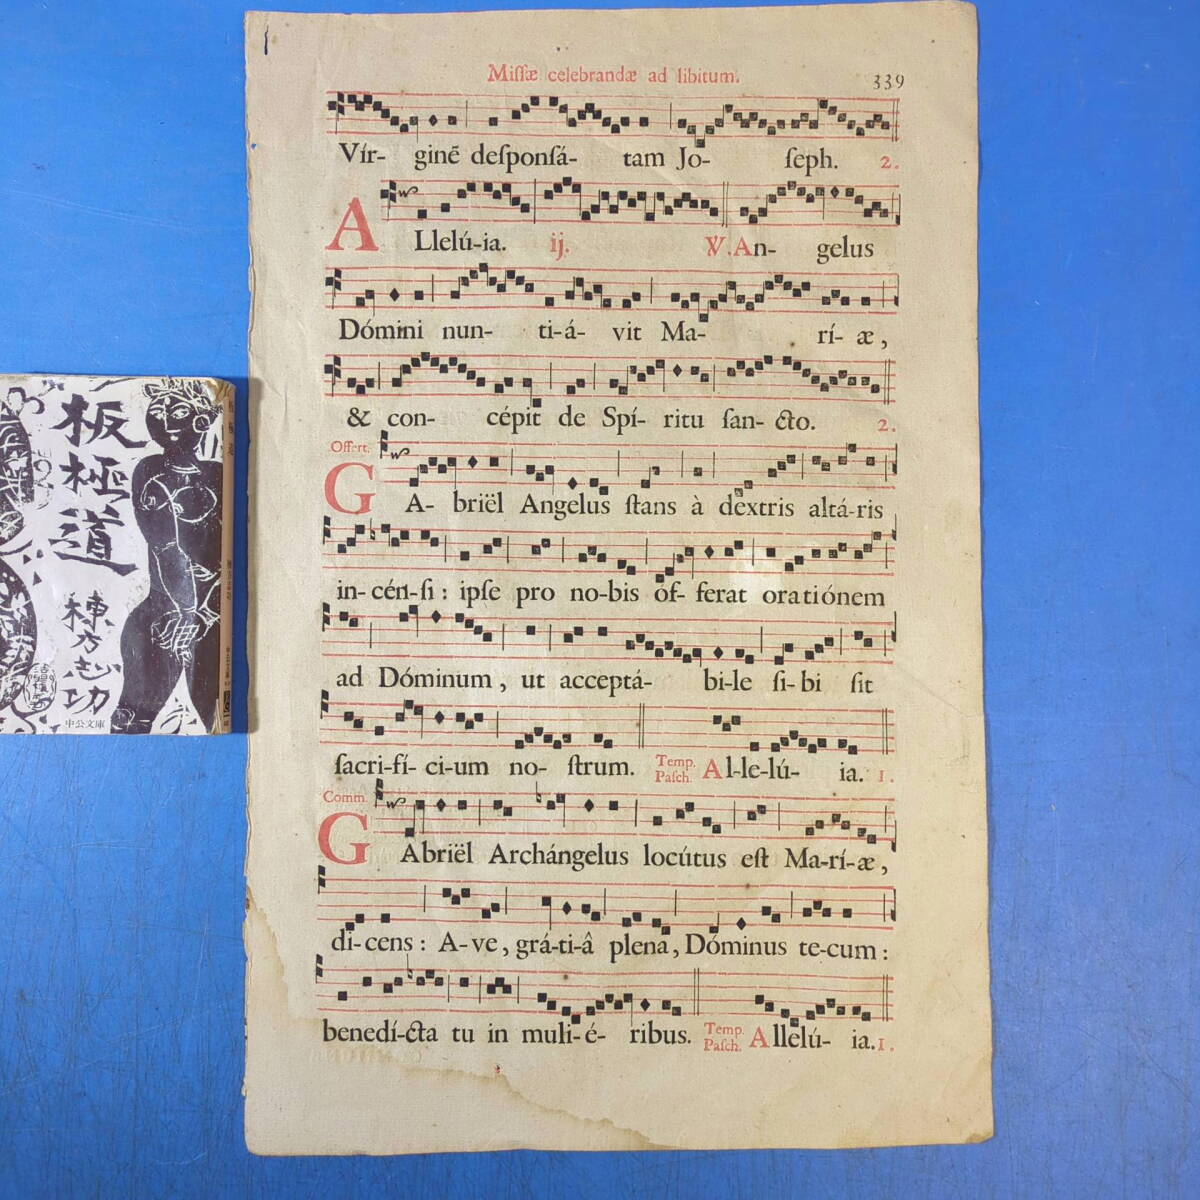 Missæ celebrandæ ad libitum.
339
Vír- ginē desponsá- tam Jo- seph. 2.
ALlelú-ia. ij. ℣. An- gelus
Dómini nun- ti-á- vit Ma- rí- æ,
& con- cépit de Spí- ritu san- cto. 2.
Offert.
GA- briël Angelus stans à dextris altá-ris
in-cén-si : ipse pro no-bis óf- ferat orationem
ad Dóminum, ut acceptá- bi-le si-bi sit
sacri-fí- ci-um no- strum. Temp. Pasch. Al-le-lú- ia. 1.
Comm.
GAbriël Archángelus locútus est Ma-rí-æ,
di-cens : A-ve, grá-ti-â plena, Dóminus te-cum :
benedí-cta tu in muli-é- ribus. Temp. Pasch. Allelú- ia. 1.
板極道
棟方志功
中公文庫
板極道